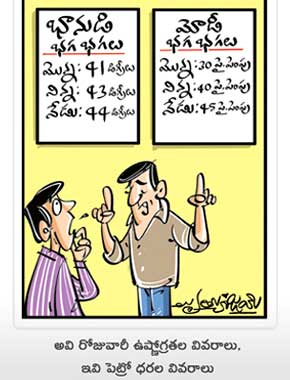 భానుడి
భగ భగలు
మొన్న: 41 డిగ్రీలు
నిన్న: 43 డిగ్రీలు
నేడు: 44 డిగ్రీలు
మోడీ
భగ భగలు
మొన్న: 30 పై. పెంపు
నిన్న: 40 పై. పెంపు
నేడు: 45 పై. పెంపు
అవి రోజువారీ ఉష్ణోగ్రతల వివరాలు,
ఇవి పెట్రో ధరల వివరాలు